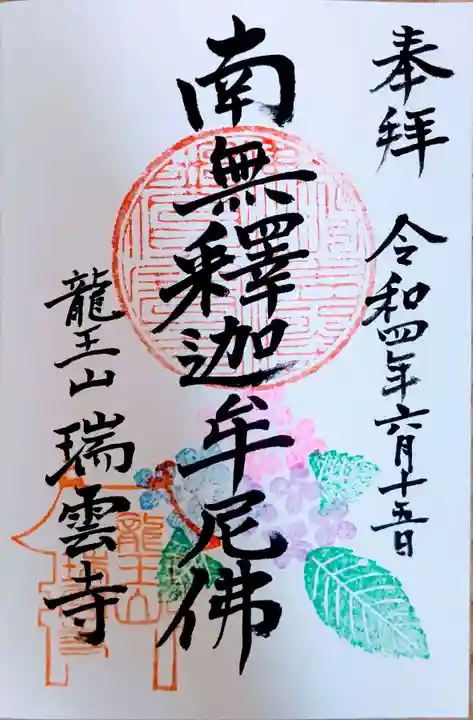 奉拝 令和四年六月十五日
南無釋迦牟尼佛
龍王山 瑞雲寺
龍王山